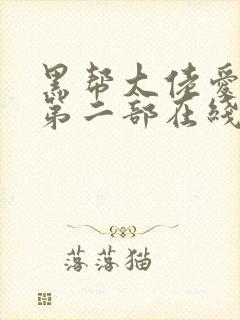 黑帮大佬爱
第二部在线
落落猫